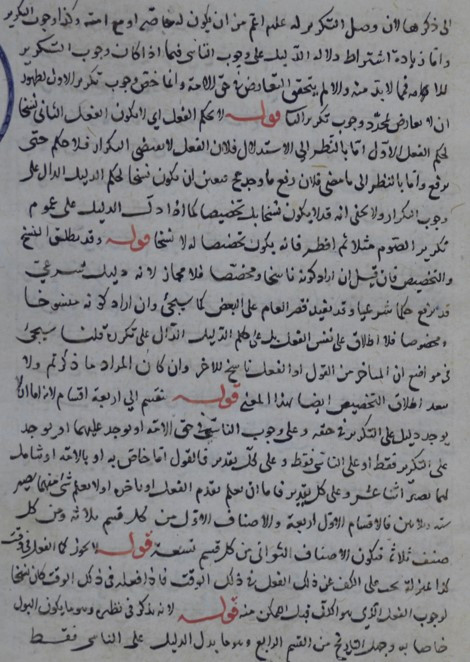 الى ذكرها لان وصل التكرير له عليه اعم من ان يكون له خاصة او مع امته وكذا وجوب التكرير
واما زيادة اشتراط دلالة الدليل على وجوب التاسي فيما اذا كان وجوب التكرير
للامة فمما لابد منه والا لم يتحقق التعارض في حق الامة وانما خص وجوب تكرير الاول لظهور
ان لا تعارض بمجرد وجوب تكرير الثا قوله لا لحكم الفعل اي لا يكون الفعل الثاني نسخا
لحكم الفعل الاول اما بالنظر الى الاستقبال فلان الفعل لا يقتضي التكرار فلا حكم حتى
يرفع واما بالنظر الى ما مضى فلان رفع ما وجد مح فتعين ان يكون نسخا لحكم الدليل الدال على
وجوب التكرار ولا يخفى انه قد لا يكون نسخا بل تخصيصا كما اذا دل الدليل على عموم
تكرير الصوم مثلا ثم افطر فانه يكون تخصيصا له لا نسخا قوله وقد يطلق النسخ
والتخصيص فان قيل ان اراد كونه ناسخا ومخصصا فلا مجاز لانه دليل شرعي
قد يرفع حكما شرعيا وقد يفيد قصر العام على البعض كما سيجئ وان اراد كونه منسوخا
ومخصوصا فلا اطلاق على نفس الفعل بل على حكم الدليل الدال على تكرره قلنا سيجئ
في مواضع ان المتاخر من القول او الفعل ناسخ للآخر وان كان المراد ما ذكرتم ولا
يبعد اطلاق التخصيص ايضا بهذا المعنى قوله تقسيم الى اربعة اقسام لانه اما ان لا
يوجد دليل على التكرير في حقه وعلى وجوب التاسي في حق الامة او يوجد عليهما او يوجد
على التكرير فقط او على التاسي فقط وعلى كل تقدير فالقول اما خاص به او بالامة او شامل
لهما يصير اثنا عشر وعلى كل تقدير فاما ان يعلم تقدم الفعل او تاخره او لا يعلم شئ منهما يصير
ستة وثلاثين فالاقسام الاول اربعة والاصناف الاول من كل قسم ثلاثة ومن كل
صنف ثلاثة فتكون الاصناف الثواني من كل قسم تسعة قوله لا يجوز كذا الفعل في وقت
كذا بمنزلة يجب على الكف عن ذلك الفعل في ذلك الوقت فاذا فعله في ذلك الوقت كان نسخا
لوجوب الفعل الذي هو الكف قبل التمكن منه قوله لانه يذكر في نظيره وهو ما يكون القول
خاصا به وجهل التاريخ من القسم الرابع وهو ما يدل الدليل على التاسي فقط